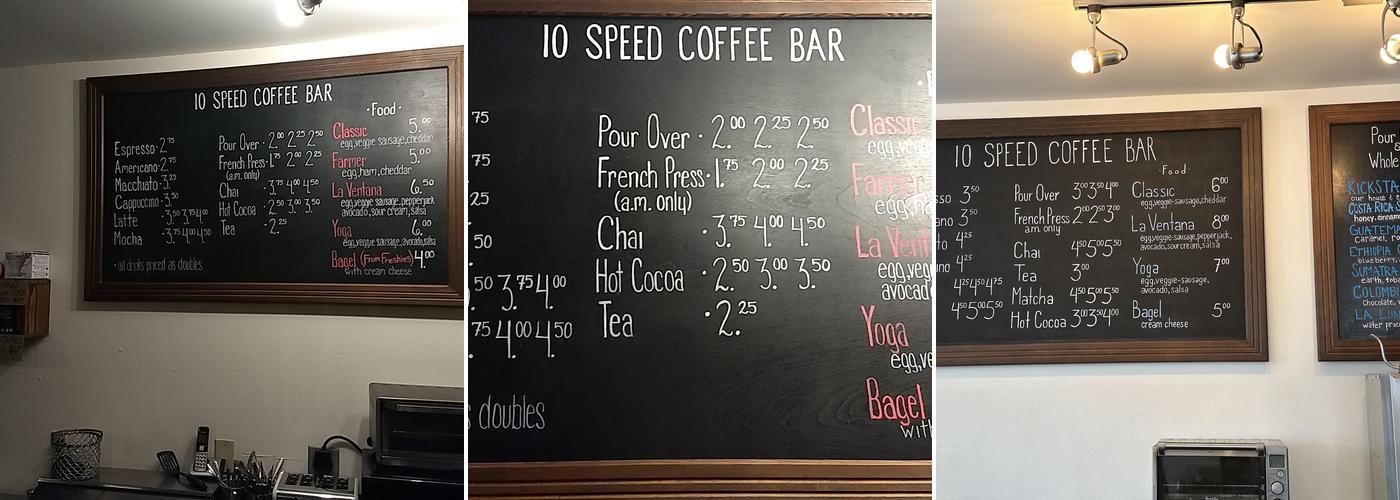 10 SPEED COFFEE BAR
·Food·
Espresso·2.75
Americano·2.75
Macchiato·3.25
Cappuccino·3.50
Latte ·3.50 3.75 4.00
Mocha ·3.75 4.00 4.50
·all drinks priced as doubles
Pour Over ·2.00 2.25 2.50
French Press·1.75 2.00 2.25
(a.m. only)
Chai ·3.75 4.00 4.50
Hot Cocoa ·2.50 3.00 3.50
Tea ·2.25
Classic 5.00
egg,veggie sausage,cheddar
Farmer 5.00
egg,ham,cheddar
La Ventana 6.50
egg,veggie sausage,pepperjack
avocado,sour cream,salsa
Yoga 6.00
egg,veggie sausage,avocado,salsa
Bagel (From Freshies) 4.00
with cream cheese
10 SPEED COFFEE BAR
75
75
25
50
50 3.75 4.00
75 4.00 4.50
doubles
Pour Over ·2.00 2.25 2.50
French Press·1.75 2.00 2.25
(a.m. only)
Chai ·3.75 4.00 4.50
Hot Cocoa ·2.50 3.00 3.50
Tea ·2.25
Classic
egg,ve
Farmer
egg,ha
La Vent
egg,veg
avocad
Yoga
egg,ve
Bagel
with
10 SPEED COFFEE BAR
·Food·
sso 3.50
ano 3.50
to 4.25
no 4.25
4.25 4.50 5.00
4.50 5.00 5.50
Pour Over 3.00 3.50 4.00
French Press 2.00 2.50 3.00
a.m. only
Chai 4.50 5.00 5.50
Tea 3.00
Matcha 4.50 5.00 5.50
Hot Cocoa 3.00 3.50 4.00
Classic 6.00
egg,veggie-sausage,cheddar
La Ventana 8.00
egg,veggie-sausage,pepperjack,
avocado,sour cream,salsa
Yoga 7.00
egg,veggie-sausage,
avocado,salsa
Bagel 5.00
cream cheese
Pour
Whole
KICKSTA
our house
COSTA RICA
honey, cinnam
GUATEMA
caramel, ro
ETHIOPIA
blueberry,
SUMATRA
earth, toba
COLOMBI
chocolate,
LA LUN
water proc